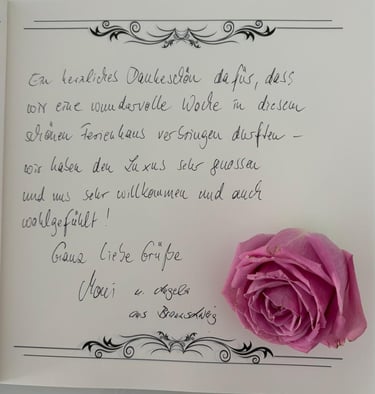 Ein herzliches Dankeschön dafür, dass
wir eine wundervolle Woche in diesem
schönen Ferienhaus verbringen durften –
wir haben den Luxus sehr genossen
und uns sehr willkommen und auch
wohlgefühlt!
Ganz liebe Grüße
u. Angela
aus Braunschweig